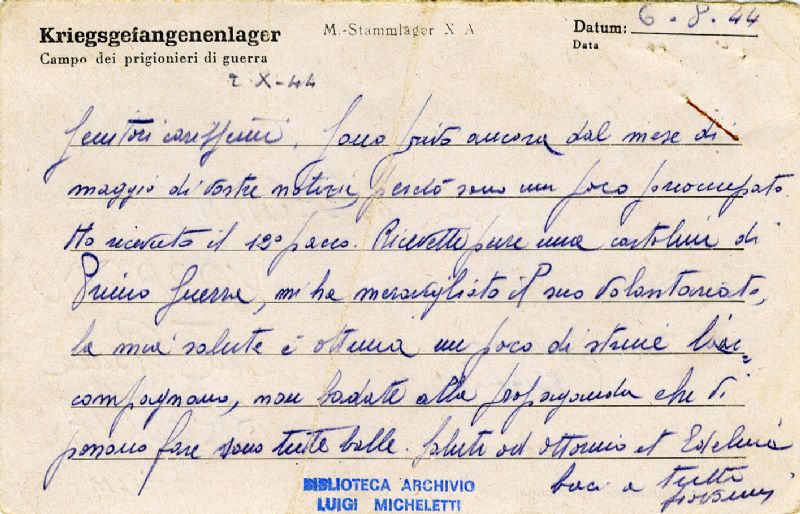 Kriegsgefangenenlager
M.-Stammlager X A
Datum: 6-8-44
Campo dei prigionieri di guerra
Data
2-X-44
Genitori carissimi, Sono privo ancora dal mese di
maggio di vostre notizie, perciò sono un poco preoccupato.
Ho ricevuto il 12° pacco. Ricevetti pure una cartolina di
Primo Guerra, mi ha meravigliato il suo volontariato,
la mia salute è ottima un poco di
compagnano, non badate alla propaganda che vi
possono fare sono tutte balle. Saluti ad ottorino et Edelmira
baci a tutti
BIBLIOTECA ARCHIVIO
LUIGI MICHELETTI